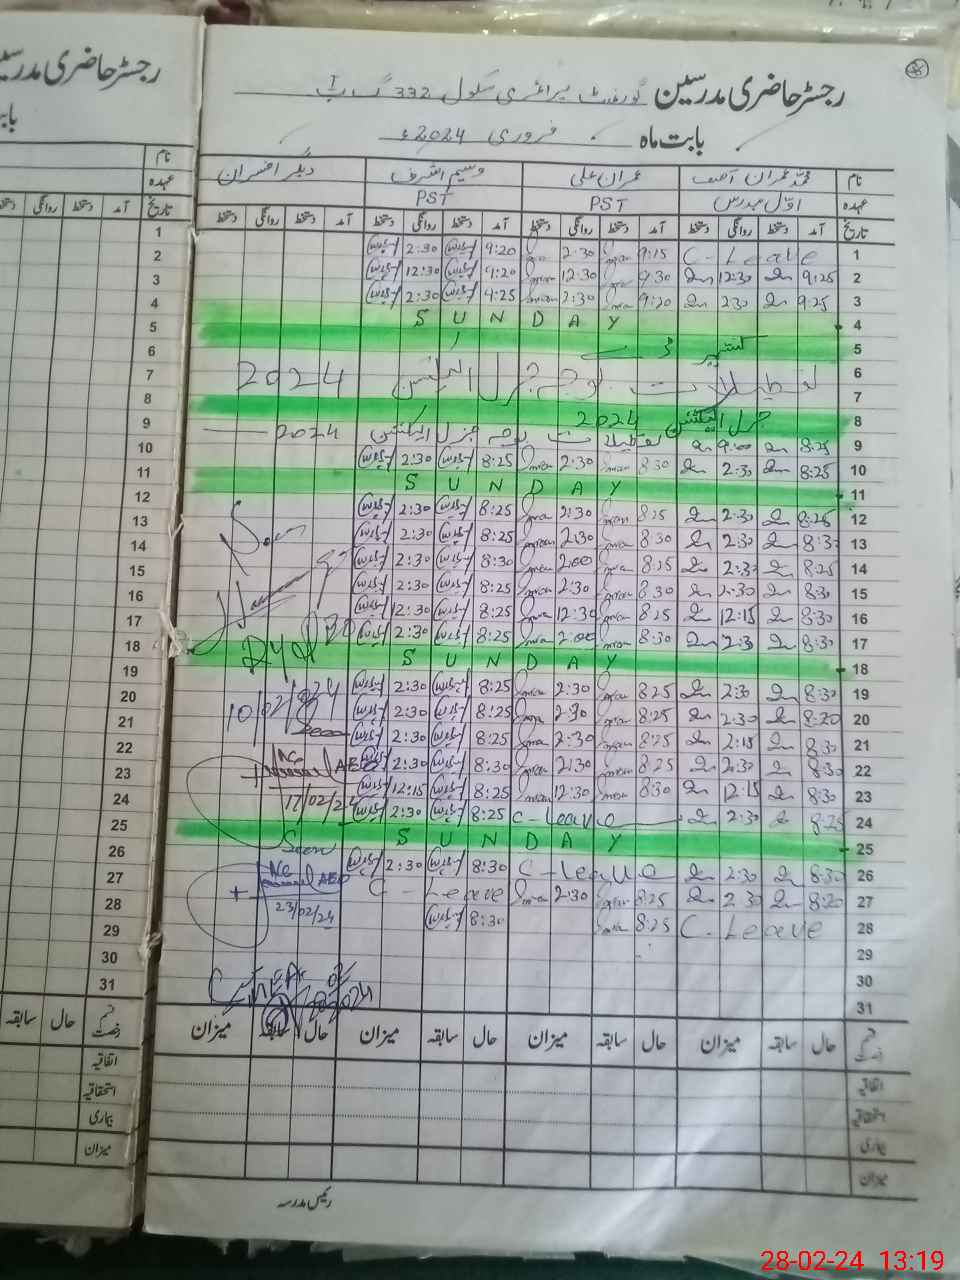 رجسٹر حاضری مدرسین گورنمنٹ پرائمری سکول 332 گ ب I
بابت ماہ فروری 2024ء
نام محمد عمران آصف عمران علی وسیم اشرف دیگر افسران
عہدہ اول مدرس PST PST
تاریخ آمد دستخط روانگی دستخط آمد دستخط روانگی دستخط آمد دستخط روانگی دستخط آمد دستخط روانگی دستخط
1 C-Leave 9:15 2:30 9:20 2:30
2 9:25 12:30 9:30 12:30 9:20 12:30
3 9:25 2:30 9:20 2:30 4:25 2:30
4 S U N D A Y
5 کشمیر ڈے
6
7 تعطیلات بوجہ جنرل الیکشن 2024
8 جنرل الیکشن 2024
9 8:25 9:00 تعطیلات بوجہ جنرل الیکشن 2024
10 8:25 2:30 8:30 2:30 8:25 2:30
11 S U N D A Y
12 8:25 2:30 8:25 2:30 8:25 2:30
13 8:30 2:30 8:30 2:30 8:25 2:30
14 8:25 2:30 8:25 2:00 8:30 2:30
15 8:30 2:30 8:30 2:30 8:25 2:30
16 8:30 12:15 8:25 12:30 8:25 12:30
17 8:30 2:30 8:30 2:00 8:25 2:30
18 S U N D A Y
19 8:30 2:30 8:25 2:30 8:25 2:30
20 8:20 2:30 8:25 2:30 8:25 2:30
21 8:30 2:15 8:25 2:30 8:25 2:30
22 8:30 2:30 8:25 2:30 8:30 2:30
23 8:30 12:15 8:30 12:30 8:25 12:15
24 8:25 2:30 C-Leave 8:25 2:30
25 S U N D A Y
26 8:30 2:30 C-Leave 8:30 2:30
27 8:20 2:30 8:25 2:30 C-Leave
28 C-Leave 8:25 8:30
29
30
31
10/02/2024
Seen
AEO
17/02/24
Seen
AEO
23/02/24
قسم رخصت حال سابقہ میزان حال سابقہ میزان حال سابقہ میزان حال سابقہ میزان
اتفاقیہ
استحقاقیہ
بیماری
میزان
رئیس مدرسہ
رجسٹر حاضری مدرسین
بابت
نام
عہدہ
تاریخ آمد دستخط روانگی دستخط
1
2
3
4
5
6
7
8
9
10
11
12
13
14
15
16
17
18
19
20
21
22
23
24
25
26
27
28
29
30
31
قسم رخصت حال سابقہ
اتفاقیہ
استحقاقیہ
بیماری
میزان
28-02-24 13:19